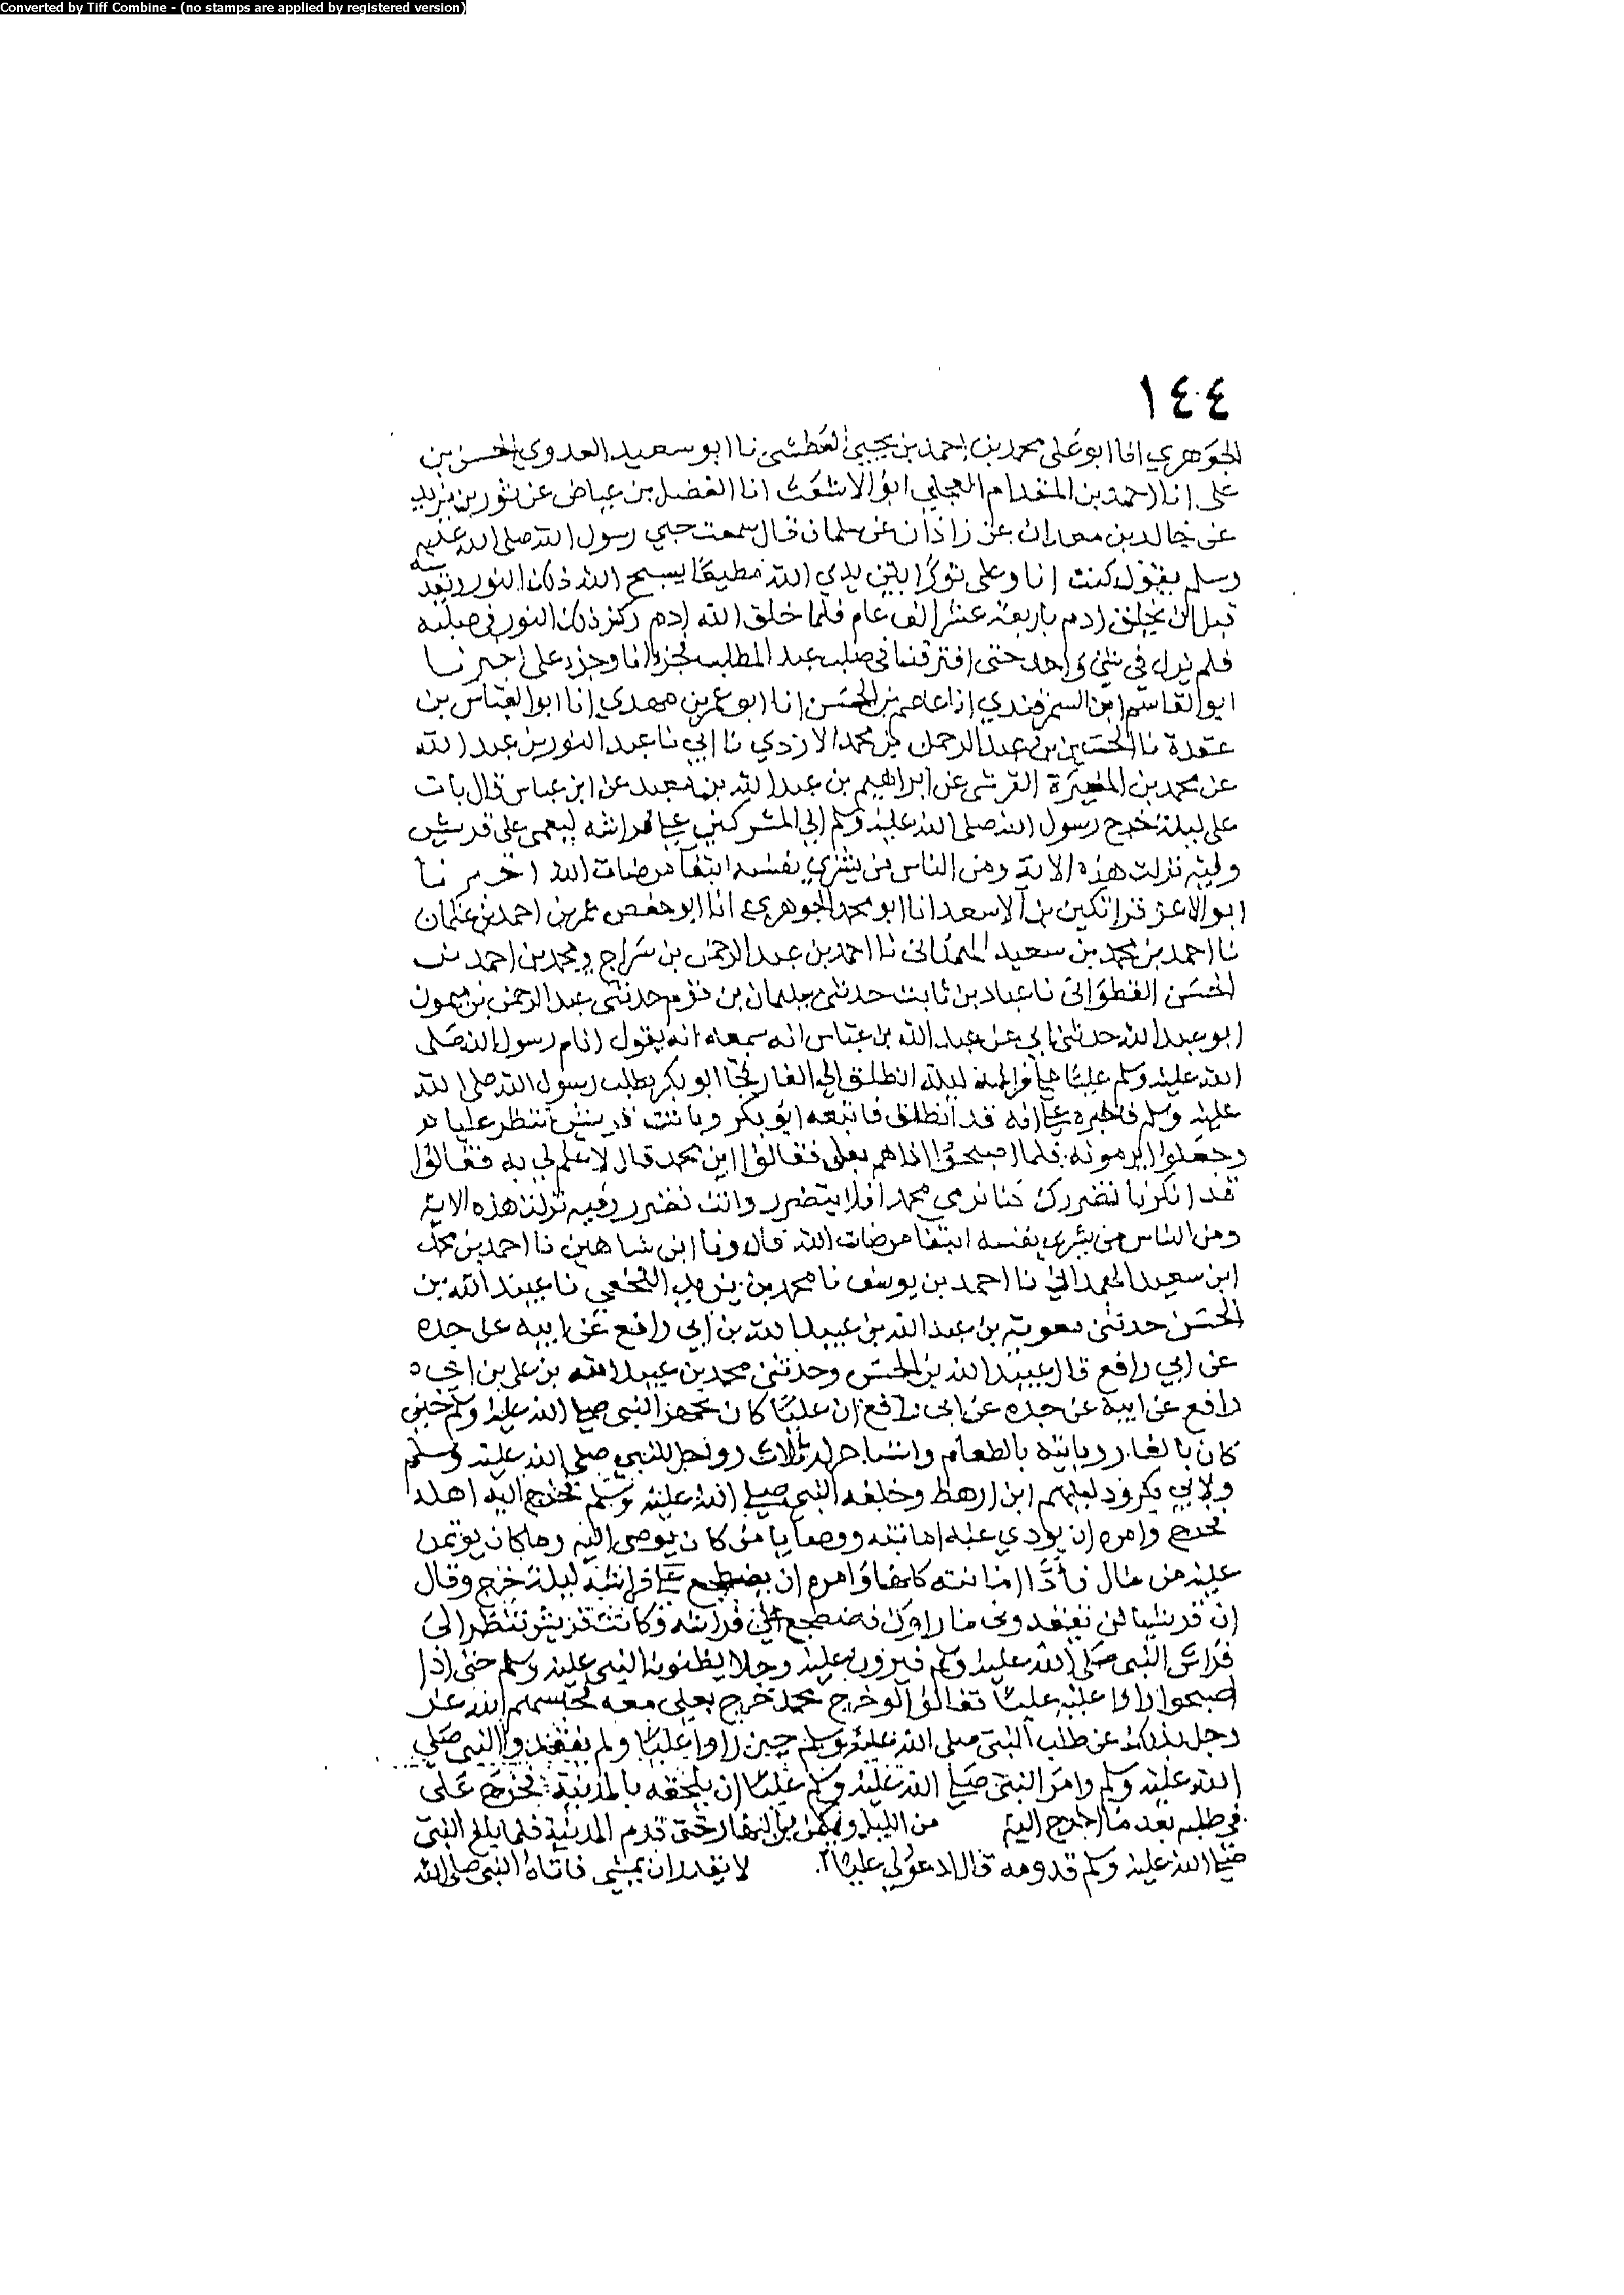 Converted by Tiff Combine - (no stamps are applied by registered version)
١٤٤
الجوهري انا ابو على محمد بن احمد بن يحيى العطشى نا ابو سعيد العدوي الحسن بن
على انا احمد بن المقدام العجلي ابو الاشعث انا الفضل بن عياض عن ثور بن يزيد
عن خالد بن معدان عن زاذان عن سلمان قال سمعت حبي رسول الله صلى الله عليه
وسلم يقول كنت انا وعلى نورا بين يدي الله مطيعا يسبح الله ذلك النور ويقدسه
قبل ان يخلق ادم باربعة عشر الف عام فلما خلق الله ادم ركز ذلك النور في صلبه
فلم نزل في شئ واحد حتى افترقنا في صلب عبد المطلب فجزء انا وجزء على اخبرنا
ابو القاسم ابن السمرقندي انا عاصم بن الحسن انا ابو عمر بن مهدي انا ابو العباس بن
عقدة نا الحسين بن عبد الرحمن بن محمد الازدي نا ابي نا عبد النور بن عبد الله
عن محمد بن المغيرة القرشى عن ابراهيم بن عبد الله بن معبد عن ابن عباس قال بات
على ليلة خرج رسول الله صلى الله عليه وسلم الى المشركين على فراشه ليعمى على قريش
وفيه نزلت هذه الاية ومن الناس من يشري نفسه ابتغا مرضات الله اخبرنا
ابو الاعز قراتكين بن الاسعد انا ابو محمد الجوهري انا ابو حفص عمر بن احمد بن عثمان
نا احمد بن محمد بن سعيد الهمداني نا احمد بن عبد الرحمن بن سراج ومحمد بن احمد بن
الحسن القطواني نا عباد بن ثابت حدثني سليمان بن قرم حدثني عبد الرحمن بن ميمون
ابو عبد الله حدثني ابي عن عبد الله بن عباس انه سمعه انه يقول انام رسول الله صلى
الله عليه وسلم عليا على فراشه ليلة انطلق الى الغار فجا ابو بكر يطلب رسول الله صلى الله
عليه وسلم فاخبره على انه قد انطلق فاتبعه ابو بكر وباتت قريش تنظر عليا
وجعلوا يرمونه فلما اصبحوا اذا هم بعلى فقالوا اين محمد قال لا علم لي به فقالوا
قد انكرنا تضررك كنا نرمي محمدا فلا يتضرر وانت تضرر وفيه نزلت هذه الاية
ومن الناس من يشري نفسه ابتغا مرضات الله قال ونا ابن شاهين نا احمد بن محمد
ابن سعيد الهمداني نا احمد بن يوسف نا محمد بن يزيد النخعي نا عبيد الله بن
الحسن حدثني معوية بن عبد الله بن عبيد الله بن ابي رافع عن ابيه عن جده
عن ابي رافع قال عبيد الله بن الحسن وحدثني محمد بن عبيد الله بن على بن ابي
رافع عن ابيه عن جده عن ابي رافع ان عليا كان يجهز النبي صلى الله عليه وسلم حين
كان بالغار وياتيه بالطعام واستاجر له ثلاث رواحل للنبي صلى الله عليه وسلم
ولابي بكر ودليلهم ابن ارهط وخلفه النبي صلى الله عليه وسلم يخرج اليه اهله
فخرج وامره ان يودي عنه امانته ووصايا من كان يوصى اليه وما كان يوتمن
عليه من مال فادا امانته كلها وامره ان يضطجع على فراشه ليلة خرج وقال
ان قريشا لن تفقدوني ما راوك فاضطجع على فراشه وكانت قريش تنظر الى
فراش النبي صلى الله عليه وسلم فيرون عليه رجلا يظنونه النبي عليه وسلم حتى اذا
اصبحوا راوا عليه عليا فقالوا لو خرج محمد خرج بعلى معه فحبسهم الله عز
وجل بذلك عن طلب النبي صلى الله عليه وسلم حين راوا عليا ولم يفقدوا النبي صلى
الله عليه وسلم وامر النبي صلى الله عليه وسلم عليا ان يلحقه بالمدينة فخرج على
في طلبه بعد ما اخرج اليه من الليل ويكمن من النهار حتى قدم المدينة فلما بلغ النبي
صلى الله عليه وسلم قدومه قال ادعوا لي عليا لا يقدر ان يمشي فاتاه النبي صلى الله